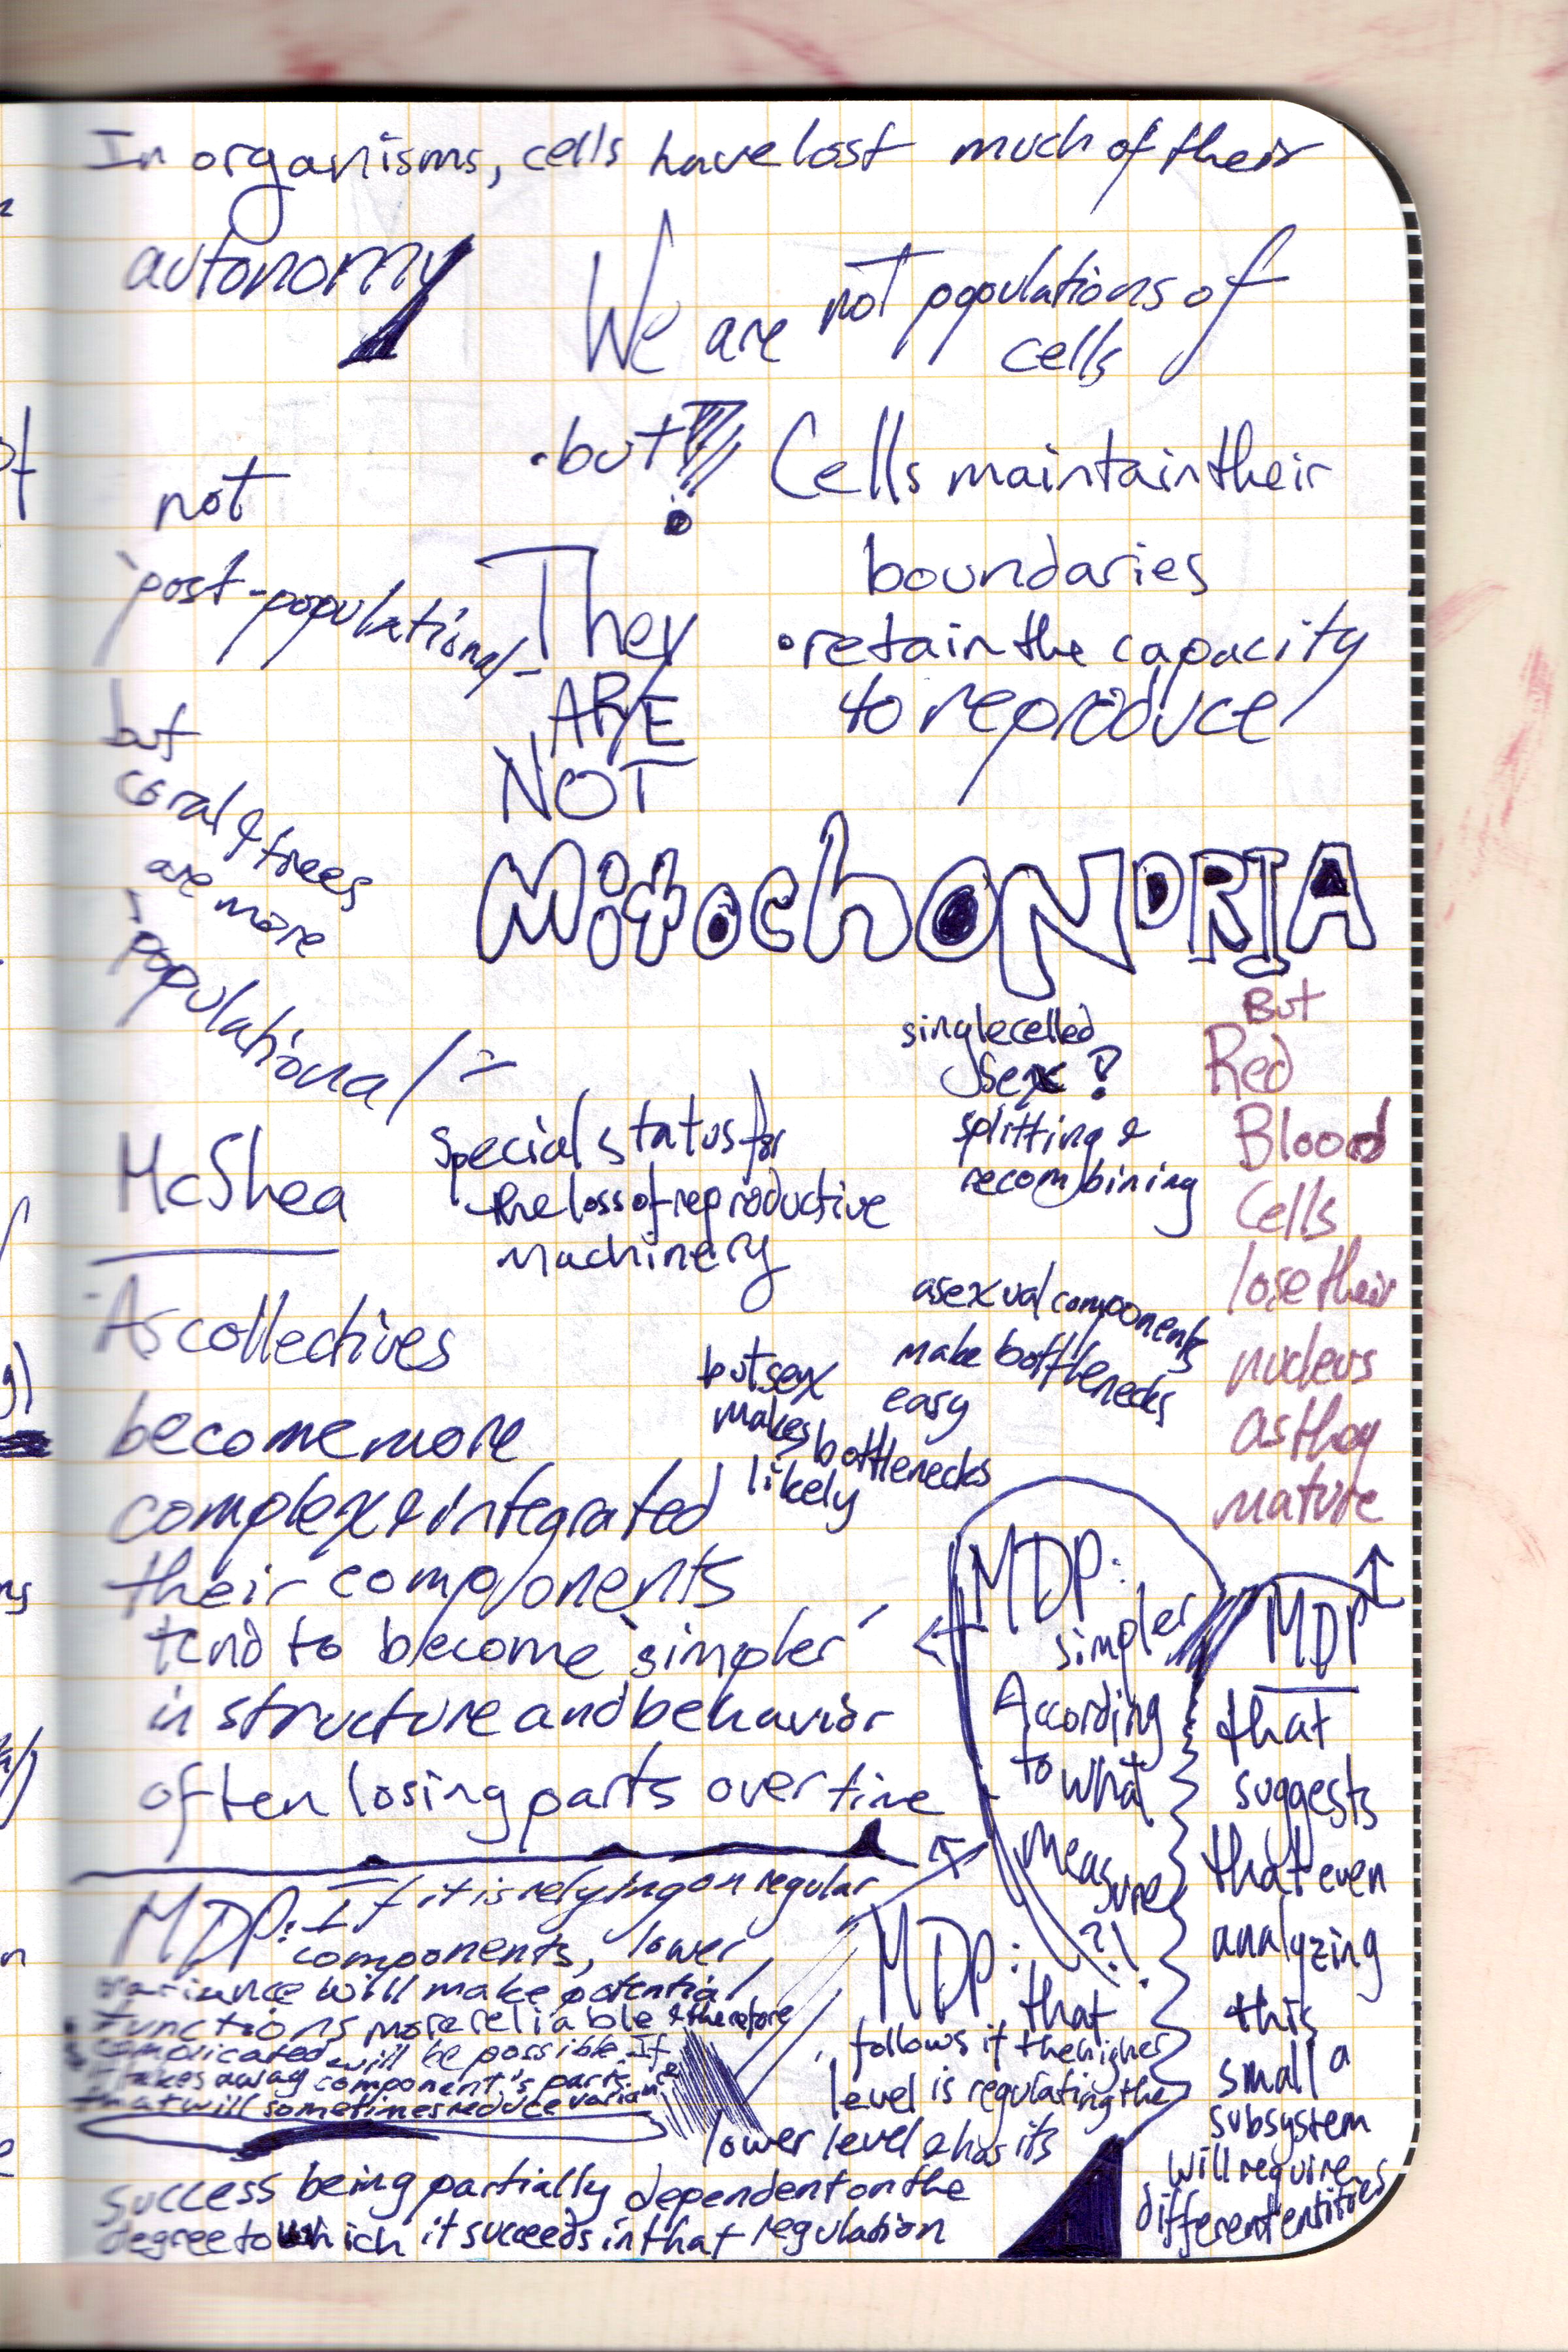 In organisms, cells have lost much of their
autonomy
We are not populations of
cells
•but!!!
Cells maintain their
boundaries
•retain the capacity
to reproduce
not
'post-populational'-
but
coral & trees
are more
populational -
They
ARE
NOT
MitochONDRIA
single celled
Sex?
splitting &
recombining
But
Red
Blood
Cells
lose their
nucleus
as they
mature
McShea
Special status for
the loss of reproductive
machinery
asexual components
make bottlenecks
easy
but sex
makes bottlenecks
likely
As collectives
become more
complex & integrated
their components
tend to become 'simpler'
in structure and behavior
often losing parts over time
MDP:
simpler
According
to what
measure
?!
MDP
that
suggests
that even
analyzing
this
small a
subsystem
will require
different entities
MDP: If it is relying on regular
components, lower
variance will make potential
functions more reliable & therefore
complicated will be possible. If
it takes away component's parts
that will sometimes reduce variance
MDP: that
follows if the higher
level is regulating the
lower level & has its
success being partially dependent on the
degree to which it succeeds in that regulation